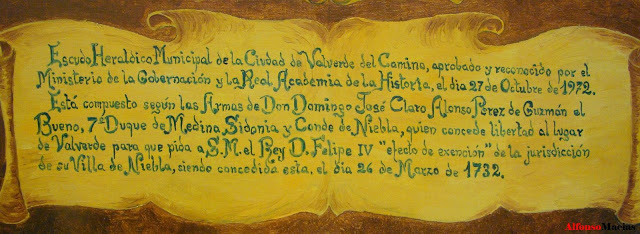 Escudo Heraldico Municipal de la Ciudad de Valverde del Camino, aprobado y reconocido por el
Ministerio de la Gobernación y la Real Academia de la Historia, el dia 27 de Octubre de 1972.
Está compuesto según las Armas de Don Domingo José Claro Alonso Perez de Guzmán el
Bueno, 7º Duque de Medina Sidonia y Conde de Niebla, quien concede libertad al lugar
de Valverde para que pida a S.M. el Rey D. Felipe IV "efecto de exención" de la jurisdicción
de su Villa de Niebla, siendo concedida esta, el dia 26 de Marzo de 1732.
Alfonso Macías